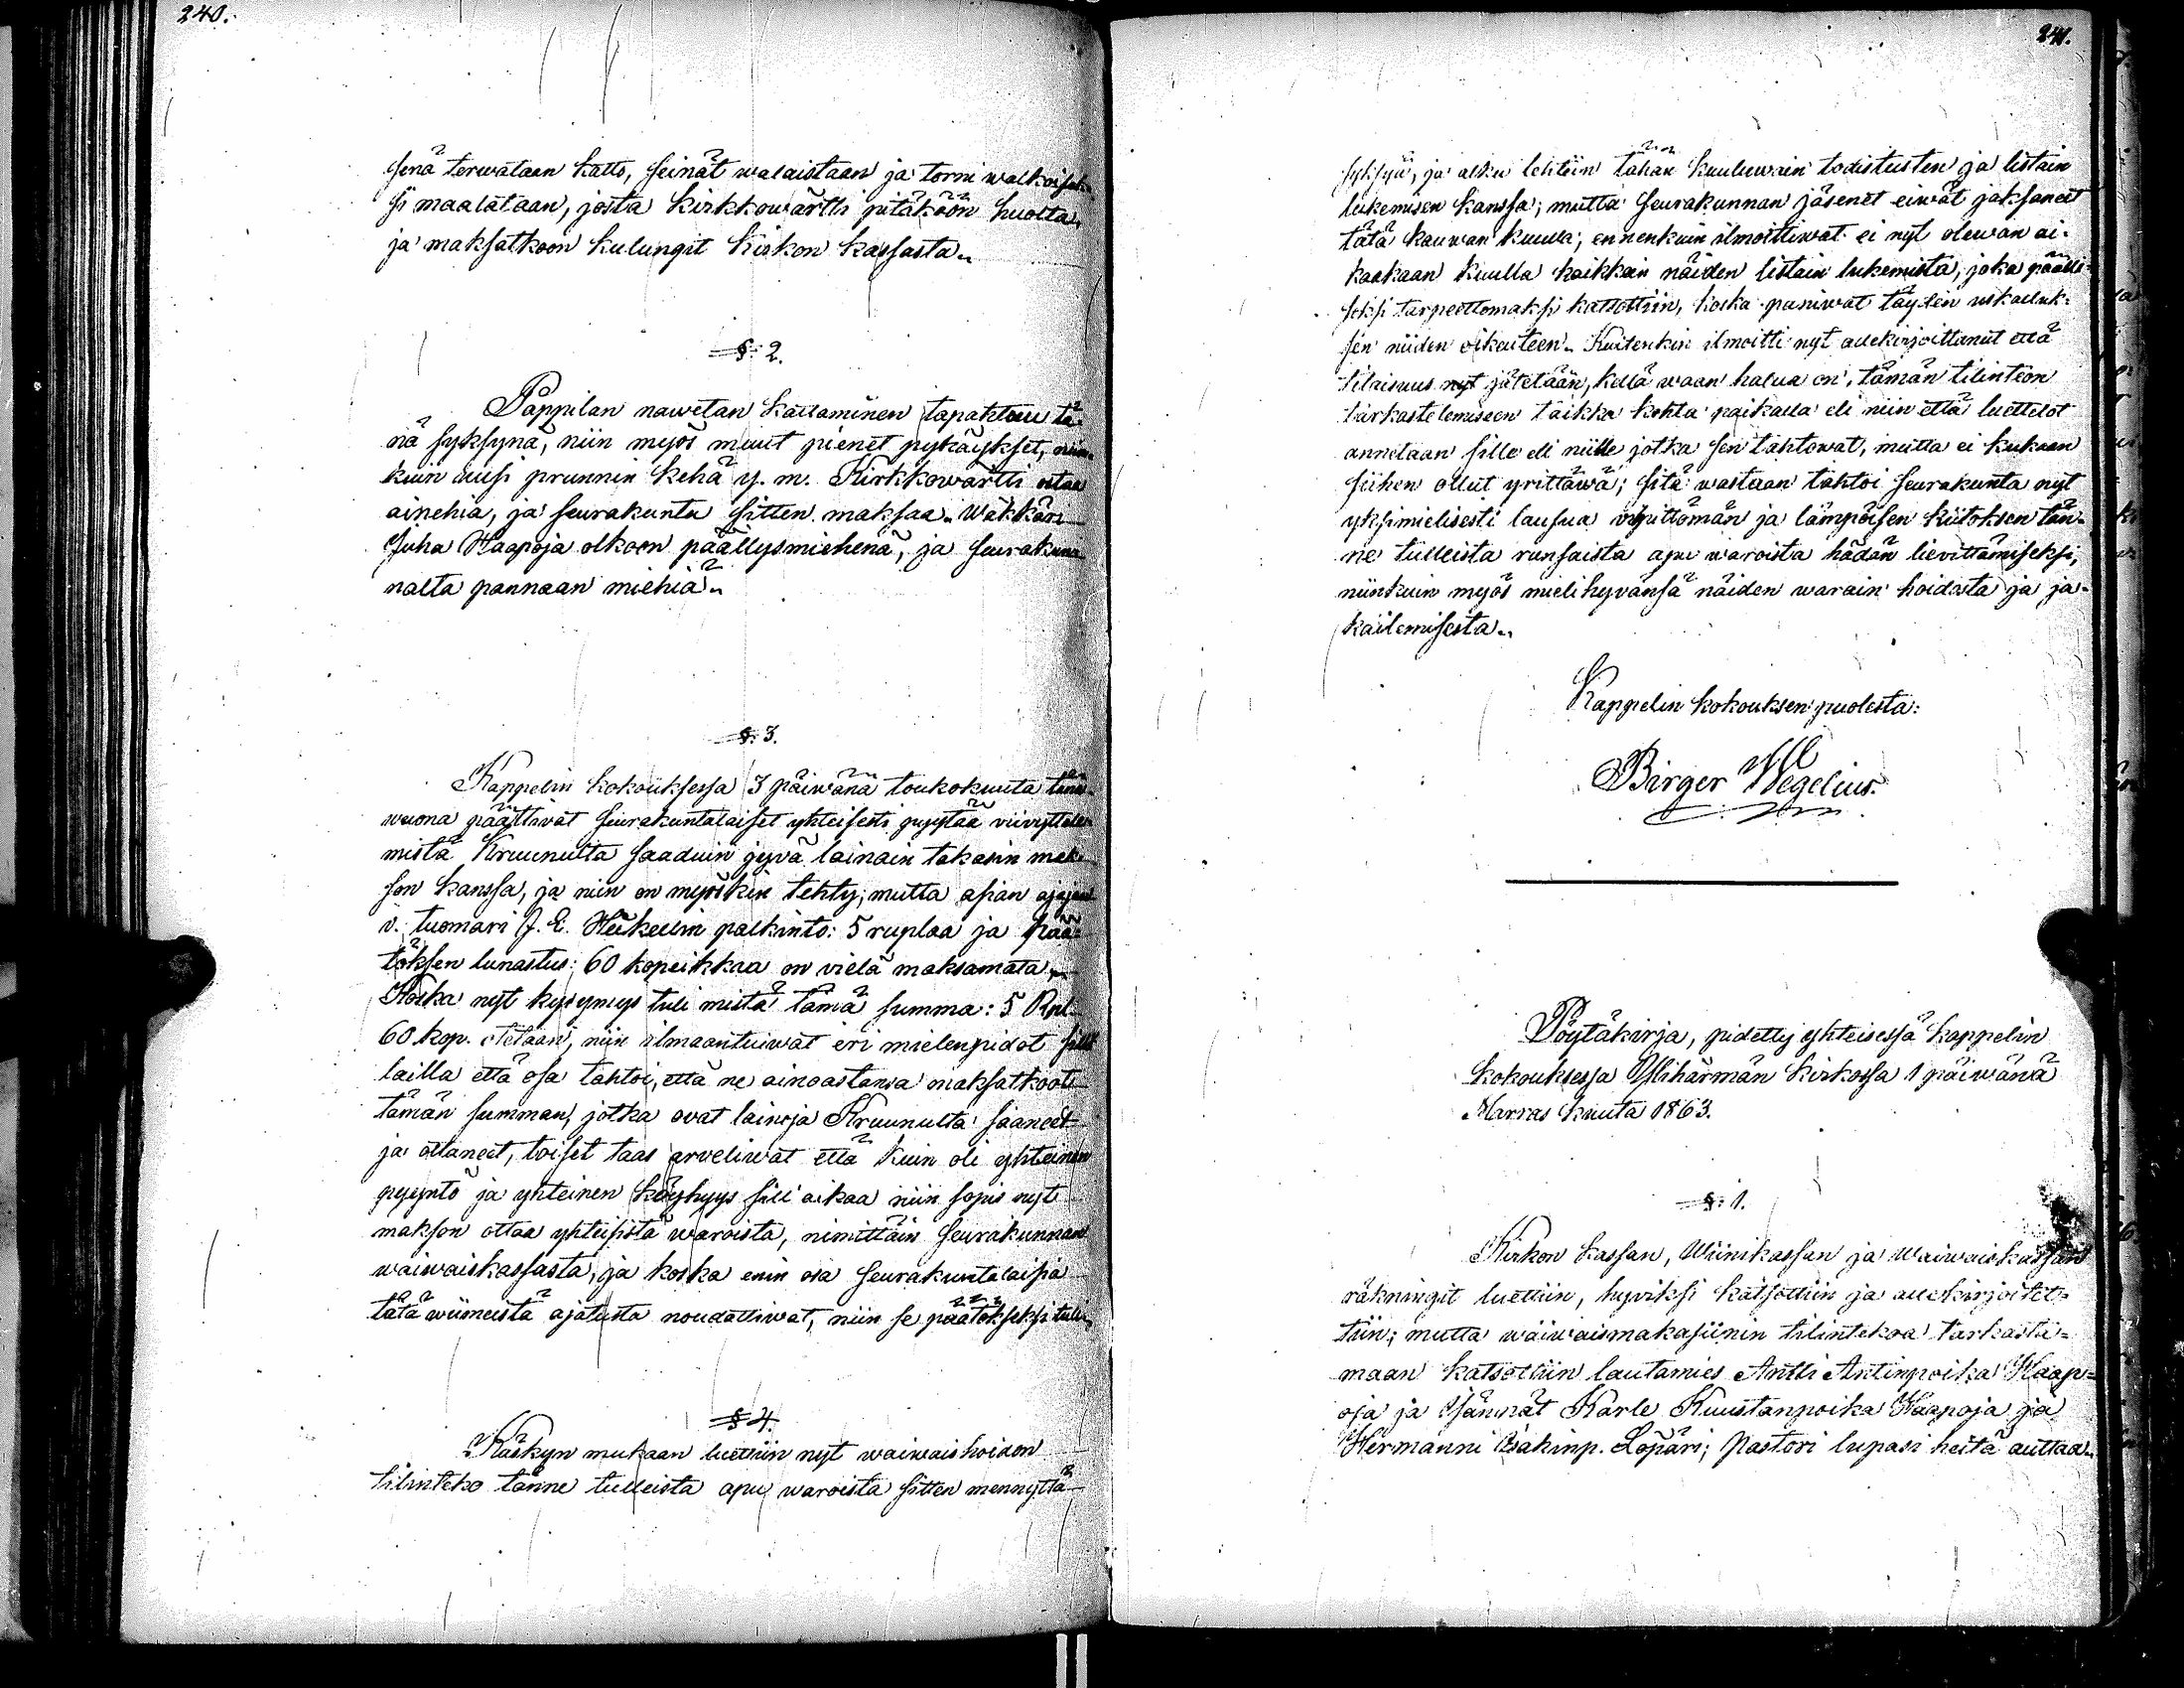 240.
senä terwataan katto, seinät walaistaan ja torni walkoisek-
si maalataan, josta Kirkkowärtti pitäköön huolta,
ja maksatkoon kulungit Kirkon kassasta.
§ 2.
Pappilan nawetan kattaminen tapahtuu tä-
nä syksynä, niin myös muut pienet pykäykset, niin-
kuin uusi prunnin kehä y. m. Kirkkowärtti ostaa
ainehia, ja seurakunta sitten maksaa. Wäkkäri
Juha Haapoja olkoon päällysmiehenä, ja seurakun-
nalta pannaan miehiä.
§ 3.
Kappelin kokouksessa 3 päiwänä toukokuuta tänä
wuona päättiwät seurakuntalaiset yhteisesti pyytää viivyttele-
mistä Kruunulta saaduin jyvä lainain takasin mak-
son kanssa, ja niin on myöskin tehty, mutta asian ajajan
v. tuomari J. E. Heikelin palkinto: 5 ruplaa ja pää-
töksen lunastus: 60 kopeikkaa on vielä maksamata.
Koska nyt kysymys tuli mistä tämä summa: 5 Rpl.
60 kop. otetaan, niin ilmaantuiwat eri mielenpidot sillä
lailla että osa tahtoi, että ne ainoastansa maksatkoot
tämän summan, jotka ovat lainoja Kruunulta saaneet
ja ottaneet, toiset taas arveliwat että kuin oli yhteinen
pyyntö ja yhteinen köyhyys sill' aikaa niin sopis nyt
makson ottaa yhteisistä waroista, nimittäin seurakunnan
waiwaiskassasta, ja koska enin osa seurakuntalaisia
tätä wiimeistä ajatusta noudattiwat, niin se päätökseksi tuli.
§ 4.
Käskyn mukaan luettiin nyt waiwaishoidon
tilinteko tänne tulleista apu waroista sitten mennyttä
241.
syksyä, ja alku tehtiin tähän kuuluwain todistusten ja listain
lukemisen kanssa; mutta seurakunnan jäsenet eiwät jaksaneet
tätä kauwan kuulla, ennenkuin ilmoittiwat ei nyt olewan ai-
kaakaan kuulla kaikkain näiden listain lukemista, joka päälli-
seksi tarpeettomaksi katsottiin, koska paniwat täyden uskalluk-
sen niiden oikeuteen. Kuitenkin ilmoitti nyt allekirjoittanut että
tilaisuus nyt jätetään, kellä waan halua on, tämän tilinteon
tarkastelemiseen taikka kohta paikalla eli niin että luettelot
annetaan sille eli niille jotka sen tahtowat, mutta ei kukaan
siihen ollut yrittäwä; sitä wastaan tahtoi seurakunta nyt
yksimielisesti lausua wilpittömän ja lämpöisen kiitoksen tän-
ne tulleista runsaista apu waroista hädän lievittämiseksi,
niinkuin myös mielihyvänsä näiden warain hoidosta ja ja-
kailemisesta.
Kappelin kokouksen puolesta:
Birger Wegelius.
Pöytäkirja, pidetty yhteisessä kappelin
kokouksessa Ylihärmän kirkossa 1 päiwänä
Marras kuuta 1863.
§ 1.
Kirkon kassan, Wiinikassan ja Waiwaiskassan
räkningit luettiin, hyviksi katsottiin ja allekirjoitet-
tiin; mutta waiwaismakasiinin tilintekoa tarkasta-
maan katsottiin lautamies Antti Antinpoika Haap-
oja ja isännät Karle Kuustanpoika Haapoja ja
Hermanni Isakinp. Löpäri; Pastori lupasi heitä auttaa.